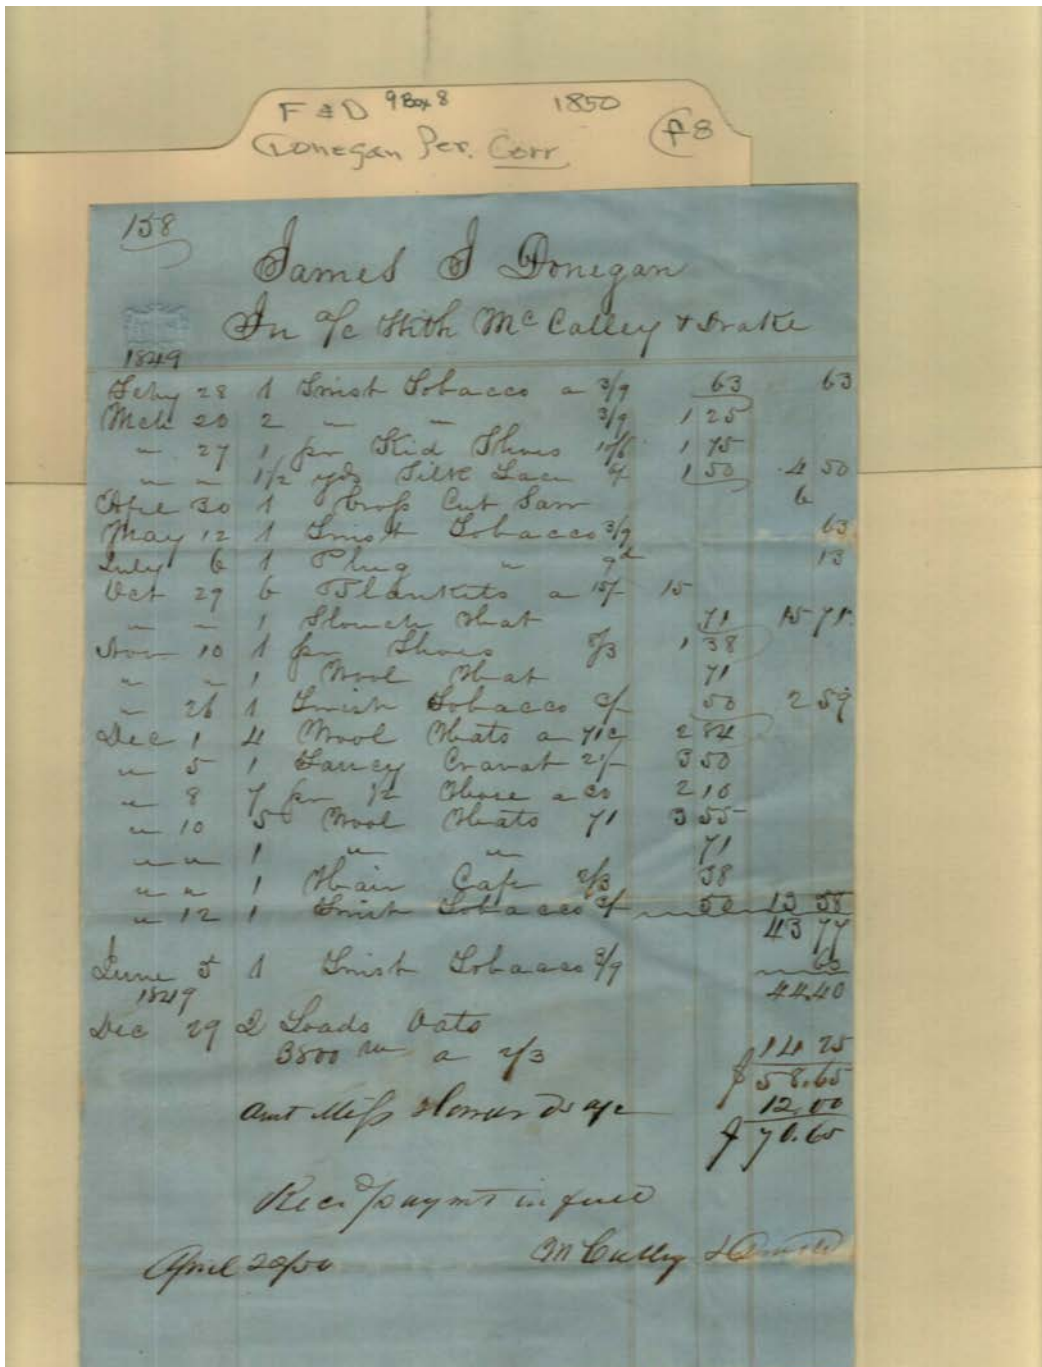 F & D 9 Box 8 1850
Donegan Per. Corr. f8
158
James J Donegan
In a/c With McCalley & Drake
1849
Feby 28 1 Twist Tobacco a 3/9 63 63
Mch 20 2 " " 3/9 1 25
" 27 1 pr Kid Shoes 10/6 1 75
" " 1 1/2 yds Silk Lace 6/ 1 50 4 50
Apl 30 1 Cross Cut Saw 6
May 12 1 Twist Tobacco 3/9 63
July 6 1 Plug " 9d 13
Oct 29 6 Blankets a 15/- 15
" " 1 Slouch Hat 71 15 71
Nov 10 1 pr Shoes 8/3 1 38
" " 1 Wool Hat 71
" 26 1 Twist Tobacco 3/ 50 2 59
Dec 1 4 Wool Hats a 71c 2 84
" 5 1 Fancy Cravat 21/- 3 50
" 8 7 pr 1/2 Hose a 30 2 10
" 10 5 Wool Hats 71 3 55
" " 1 " " 71
" " 1 Hair Cap 2/3 38
" 12 1 Twist Tobacco 3/ 50 13 58
43 77
June 5 1 Twist Tobacco 3/9 63
1849 44.40
Dec 29 2 Loads Oats
3800 a 2/3 14 25
$ 58.65
Amt Miss a/c 12.00
$ 70.65
Recd paymt in full
April 20/50 McCalley & Drake